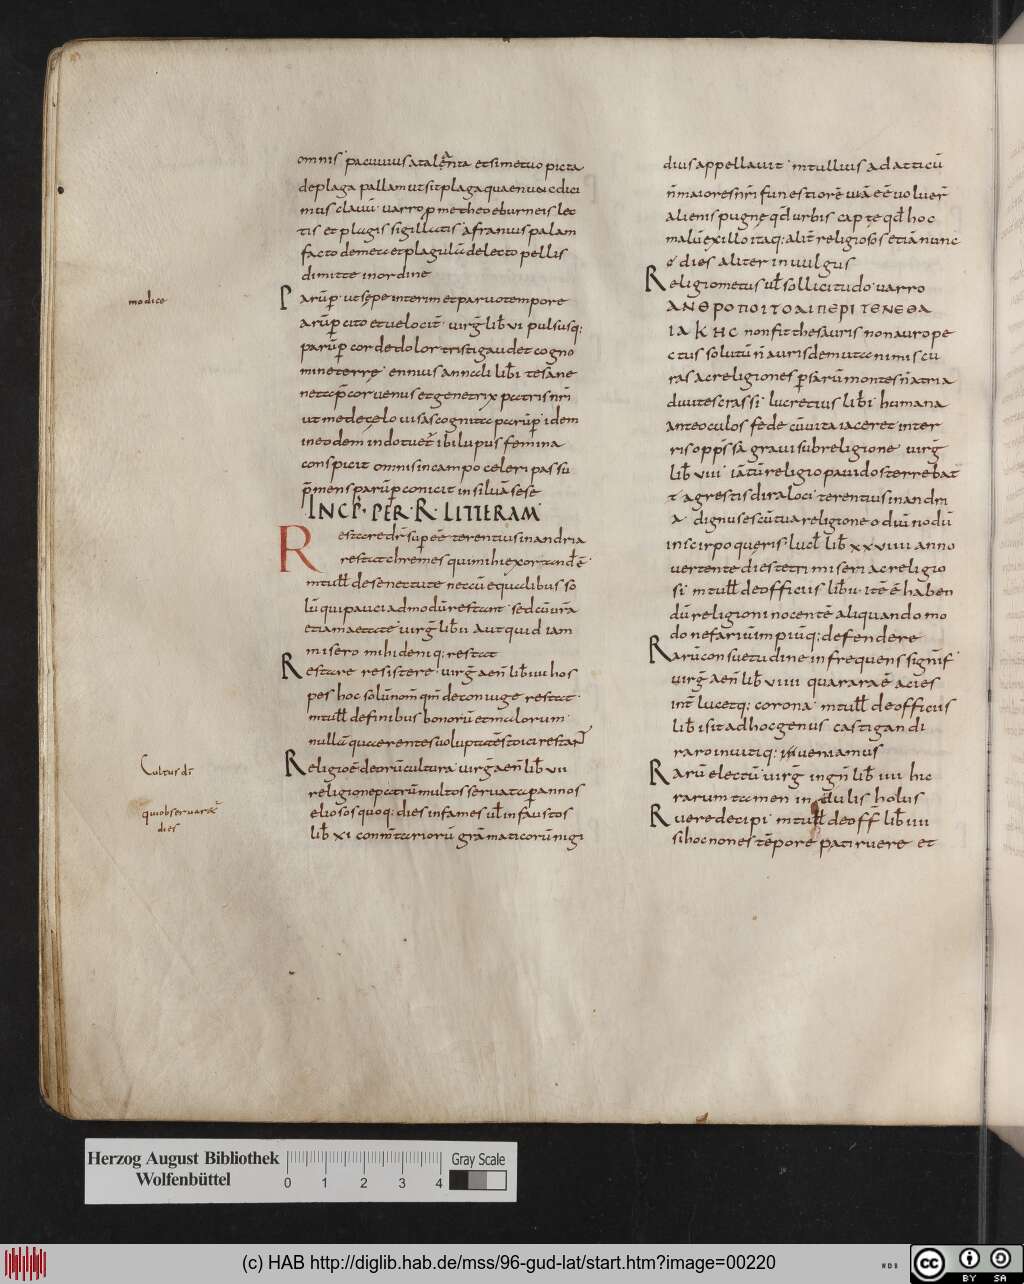 omnis pacuuius atalenta et si metuo picta
de plaga pallam ut sit plaga quae nunc dici
mus clauū uarro prometheo eburneis lec
tis et plagis sigillatis afranius palam
facto demeta et plagulā de lecto pellis
dimitte in ordine
modice
Parūp ut sepe interim et paruo tempore
parūp cito et uelocit uirg̅ lib̅ vi pulsusq;
parūp cor de dolor tristi gaudet cogno
mine terre ennius annali lib̅i te sane
neta p̅ cor uenus et genetrix patris nr̅i
ut me de celo uisas cognata parūp idem
in eodem indotuet̅ ibi lupus femina
conspicit omnis in campo celeri passū
p̅mens parūp conicit in siluā sese
INCP̅· PER· R· LITTERAM
Restare dr̅ sup̅ ee̅ terentius in andria
restat chremes qui mihi exorandꝰ ē
m tull̅ de senectute netcū equalibus so
lū qui pauci admodū restant sed cū ur̅a
etiam aetate uirg̅ lib̅ ii aut quid iam
misero mihi deniq; restat
Restare resistere uirg̅ aen̅ lib̅ iiii hos
pes hoc solū nom̅ qm̅ de coniuge restat
m tull̅ de finibus bonorū et malorum
nullā quaerentes uoluptatē stoici restant
Cultus di
Religioē deorū cultura uirg̅ aen̅ lib̅ vii
religione patrū multos seruata p annos
qui obseruarat
dies
eliosos quoq; dies infames ul̅ infaustos
lib̅ xi comm̅tariorū grāmaticorū nigi
dius appellauit m tullius ad atticū
n̅ maiores nr̅i funestiorē uiā eē uoluer̅
aliensis pugne qd̅ urbis capte qd̅ hoc
malū ex illo itaq; alit̅ religiosos etiā nunc
ē dies aliter in uulgus
Religio metus ul̅ sollicitudo uarro
ΑΝΘΡΟΠΟΙΤΟΑΙΠΕΡΙ ΓΕΝΕΘΑ
ΙΑΚΗC non fit thesauris non auro pe
ctus solutū n̅ auris demut animis cu
ras ac religiones p̅sarū montes n̅ atria
diuites crassi lucretius lib̅ i humana
ante oculos fede cū uita iaceret in ter
ris opp̅ssa graui sub religione uirg̅
lib̅ viii iā tū religio pauidos terrebat
t agrestis dira loci terentius in andri
a dignus es cū tua religione odiū nodū
in scirpo queris lucl̅ lib̅ xxviiii anno
uertente dies tetri miseri ac religio
si m tull̅ de officiis lib̅ ii itē ē haben
dū religioni nocentē aliquando mo
do nefariū impiūq; defendere
Rarū consuetudine infrequens signif
uirg̅ aen̅ lib̅ viiii quararaē acies
int̅ lucetq; corona m tull̅ de officiis
lib̅ i sit ad hoc genus castigandi
raro inuitiq; ueniamus
Rarū electū uirg̅ in gn̅ lib̅ iiii hic
rarum tamen in dulis holus
Ruere decipi m tull̅ de off̅ lib̅ iiii
si hoc nones tēpore pati ruere et
Herzog August Bibliothek
Wolfenbüttel
0 1 2 3 4
Gray Scale
(c) HAB http://diglib.hab.de/mss/96-gud-lat/start.htm?image=00220
WDB
cc BY SA